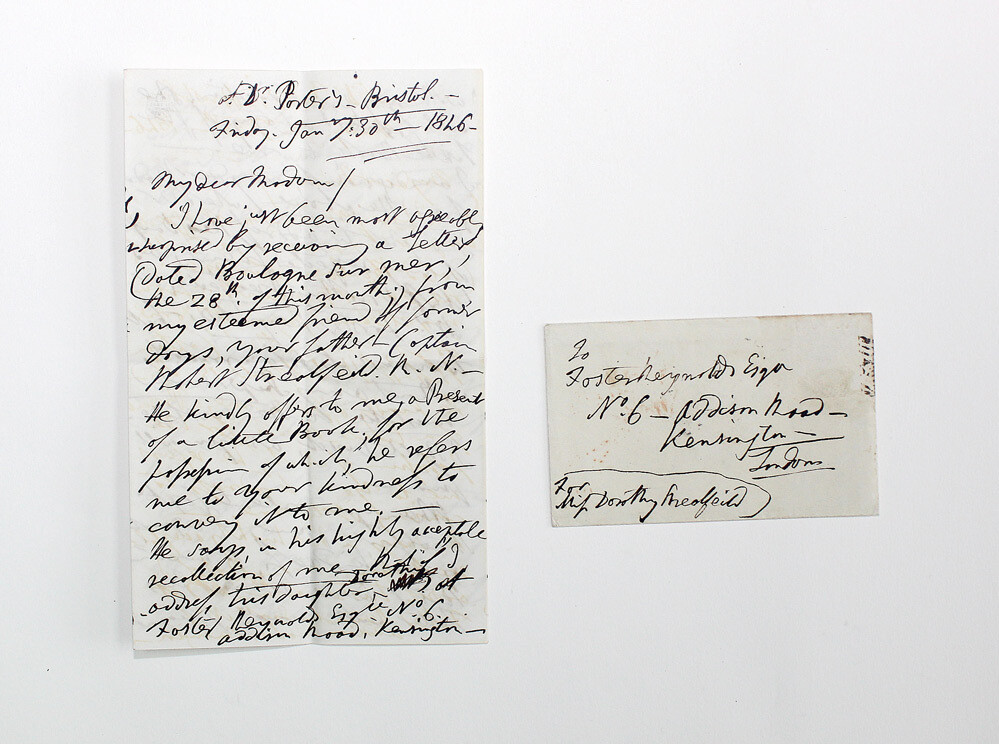 at Dr. Porter's - Bristol. -
Friday. Jany: 30th - 1846 -
My dear Madam /
I have just been most agreeably
surprised by receiving a Letter
(dated Boulogne Sur mer,
the 28th. of this month,) from
my esteemed friend of former
days, your father Captain
Robert Streatfeild. R. N. -
He kindly offers to me, a Present
of a little Book, for the
possession of which, he refers
me to your kindness to
convey it to me. -
He says, in his highly acceptable
recollection of me, that if I
address, his daughter Dorothy at
Foster Reynolds Esqre No. 6.
Addison Road, Kensington -
To
Foster Reynolds Esqr
No. 6 - Addison Road -
Kensington -
London
For
Miss Dorothy Streatfeild